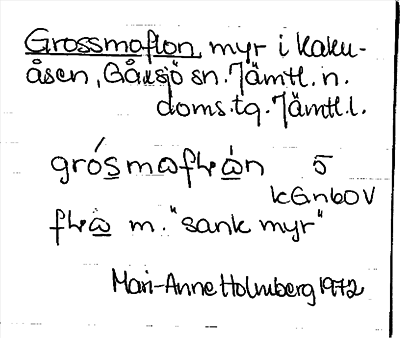 Grossmoflon, myr i Kaku-
åsen, Gåxsjö sn. Jämtl. n.
doms.tg. Jämtl.l.
5
kGnbOV
m. "sank myr"
Mari-Anne Holmberg 1972